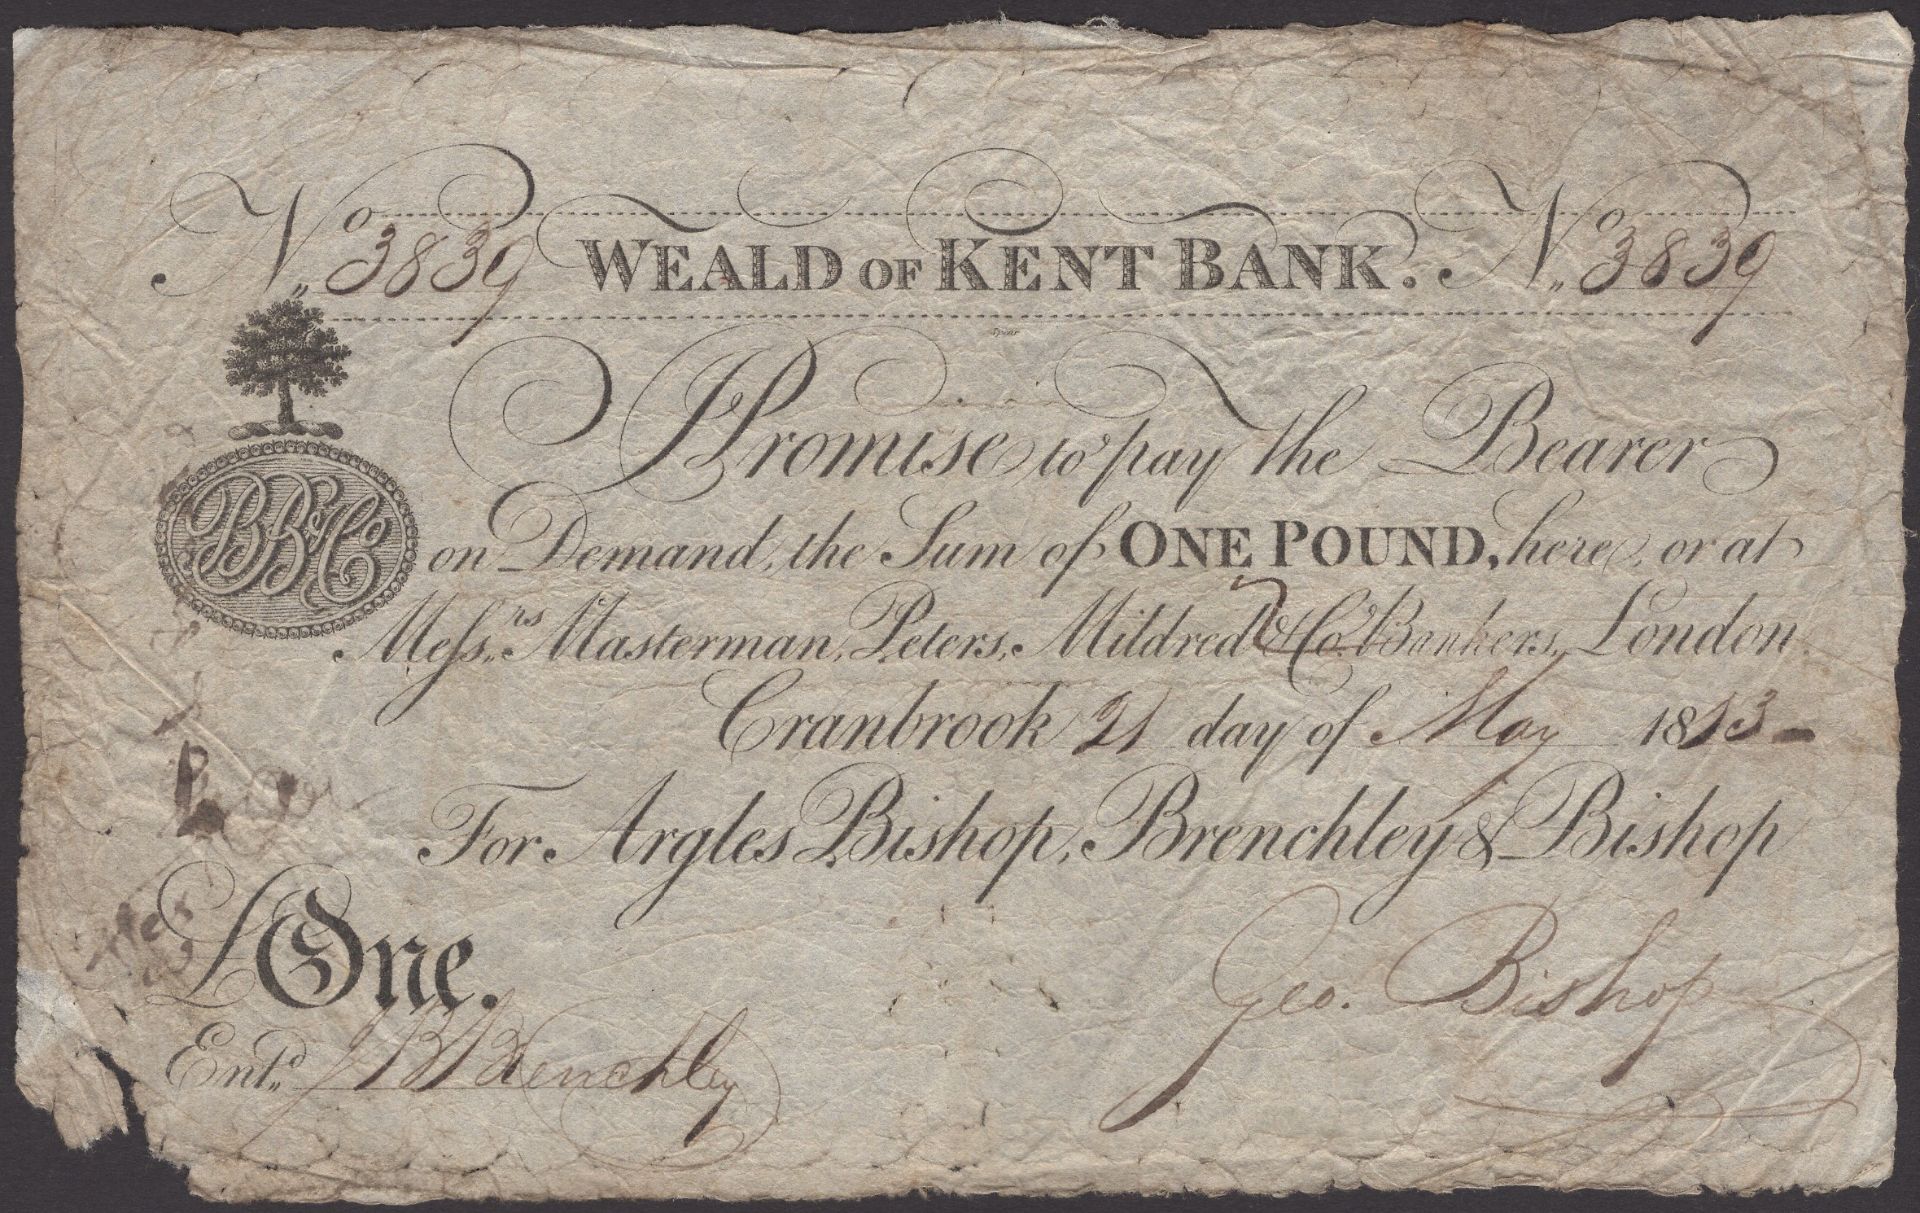 No 3839 WEALD OF KENT BANK. No 3839
Spear
I Promise to pay the Bearer
BB&Co
on Demand, the Sum of ONE POUND, here, or at
Messrs Masterman, Peters, Mildred & Co. Bankers, London.
Cranbrook 21 day of May 1813
For Argles Bishop, Brenchley & Bishop
£One.
Geo. Bishop
Entd. J B Brenchley